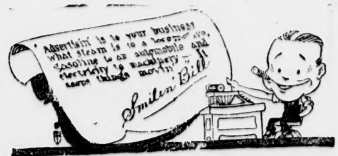 "Advertisin' is to your business
what steam is to a locomotive,
gasoline to an automobile and
electricity to machinery — It
keeps things movin'"
Smilen Bill